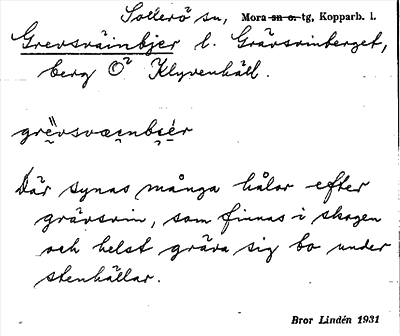 Sollerö sn, Mora sn o. tg, Kopparb. l.
Grevsväinbjer l. Grävsvinberget,
berg Ö Klyvenhäll.
grëvsvæɪnbɪér
Där synas många hålor efter
grävsvin, som finnas i skogen
och helst gräva sig bo under
stenhällar.
Bror Lindén 1931